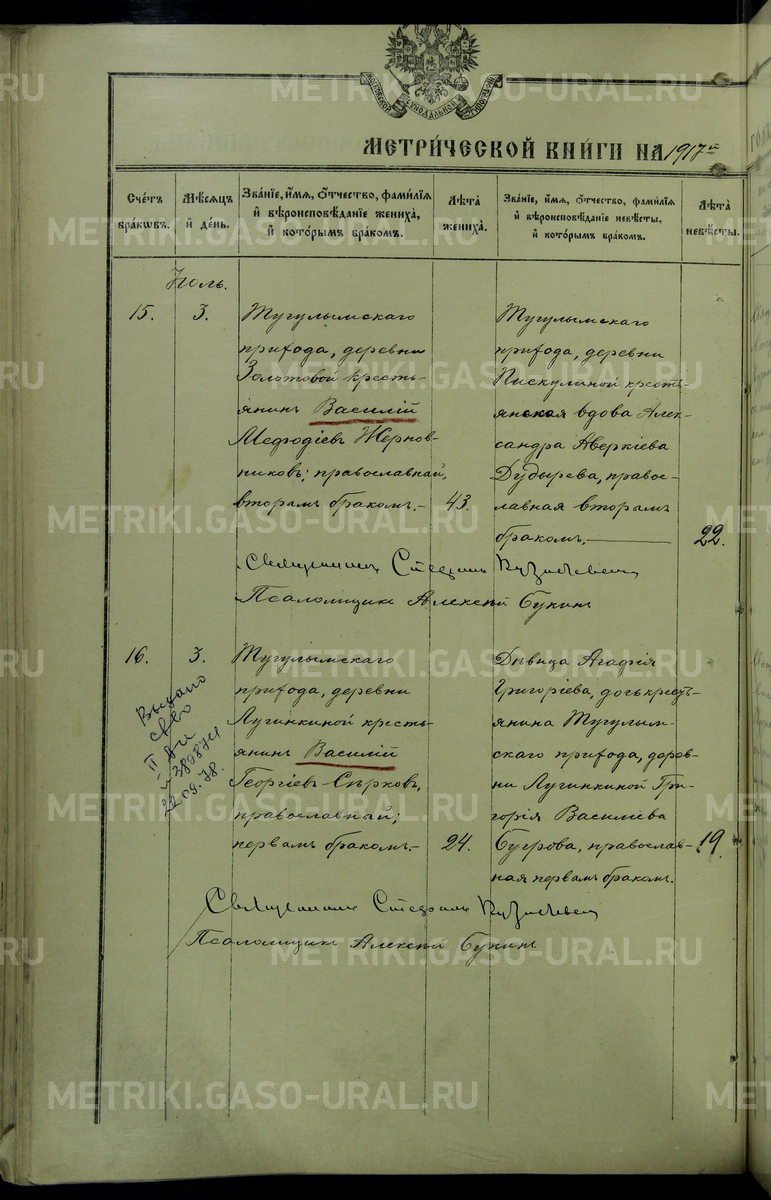 МОСКОВСКОЙ СѴНОДАЛЬНОЙ ТИПОГРАФІИ
МЕТРИ́ЧЕСКОЙ КНИ́ГИ НА 1917й
Сче́тъ бра́кѡвъ.
Мѣ́сѧцъ и҆ де́нь.
Зва́нїе, и҆́мѧ, ѻ҆́тчество, фами́лїѧ и҆ вѣроисповѣ́данїе жениха̀, и҆ кото́рымъ бра́комъ.
Лѣ̑та жениха̀.
Зва́нїе, и҆́мѧ, ѻ҆́тчество, фами́лїѧ и҆ вѣроисповѣ́данїе невѣ́сты, и҆ кото́рымъ бра́комъ.
Лѣ̑та невѣ́сты.
Іюль.
15.
3.
Тугулымскаго
прихода, деревни
Золотовой кресть-
янинъ Василій
Мефодіевъ Жернов-
никовъ; православный,
вторымъ бракомъ.-
43.
Тугулымскаго
прихода, деревни
Пискулиной кресть-
янская вдова Алек-
сандра Аверкіева
Дудырева, право-
славная вторымъ
бракомъ.
22.
Священникъ Стефанъ
Псаломщикъ Алексѣй Букинъ
16.
3.
Тугулымскаго
прихода, деревни
Лучинкиной кресть-
янинъ Василій
Георгіевъ Сѣрковъ,
православный;
первымъ бракомъ.-
24.
Дѣвица Агафія
Григоріева, дочь кресть-
янина Тугулым-
скаго прихода, дерев-
ни Лучинкиной Гри-
горія Василіева
Бугрова, православ-
ная первымъ бракомъ.
19.
Выдано
св-во
II
22.09.78.
Священникъ Стефанъ
Псаломщикъ Алексѣй Букинъ
METRIKI.GASO-URAL.RU